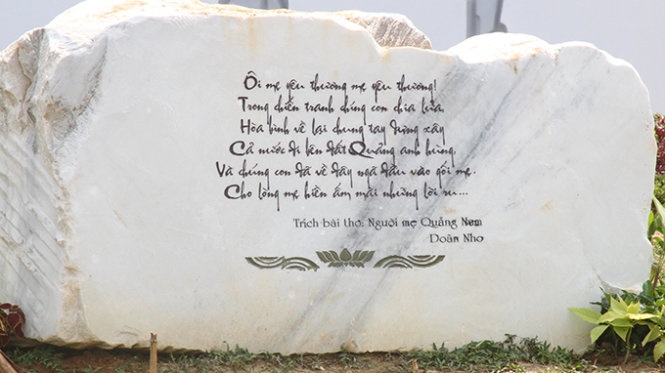 Ôi mẹ yêu thương mẹ yêu thương!
Trong chiến tranh chúng con chia lửa,
Hòa bình về lại chung tay dựng xây
Cả nước đi lên đất Quảng anh hùng,
Và chúng con đã về đây ngã đầu vào gối mẹ.
Cho lòng mẹ hiền ấm mãi những lời ru...
Trích bài thơ: Người mẹ Quảng Nam
Doãn Nho